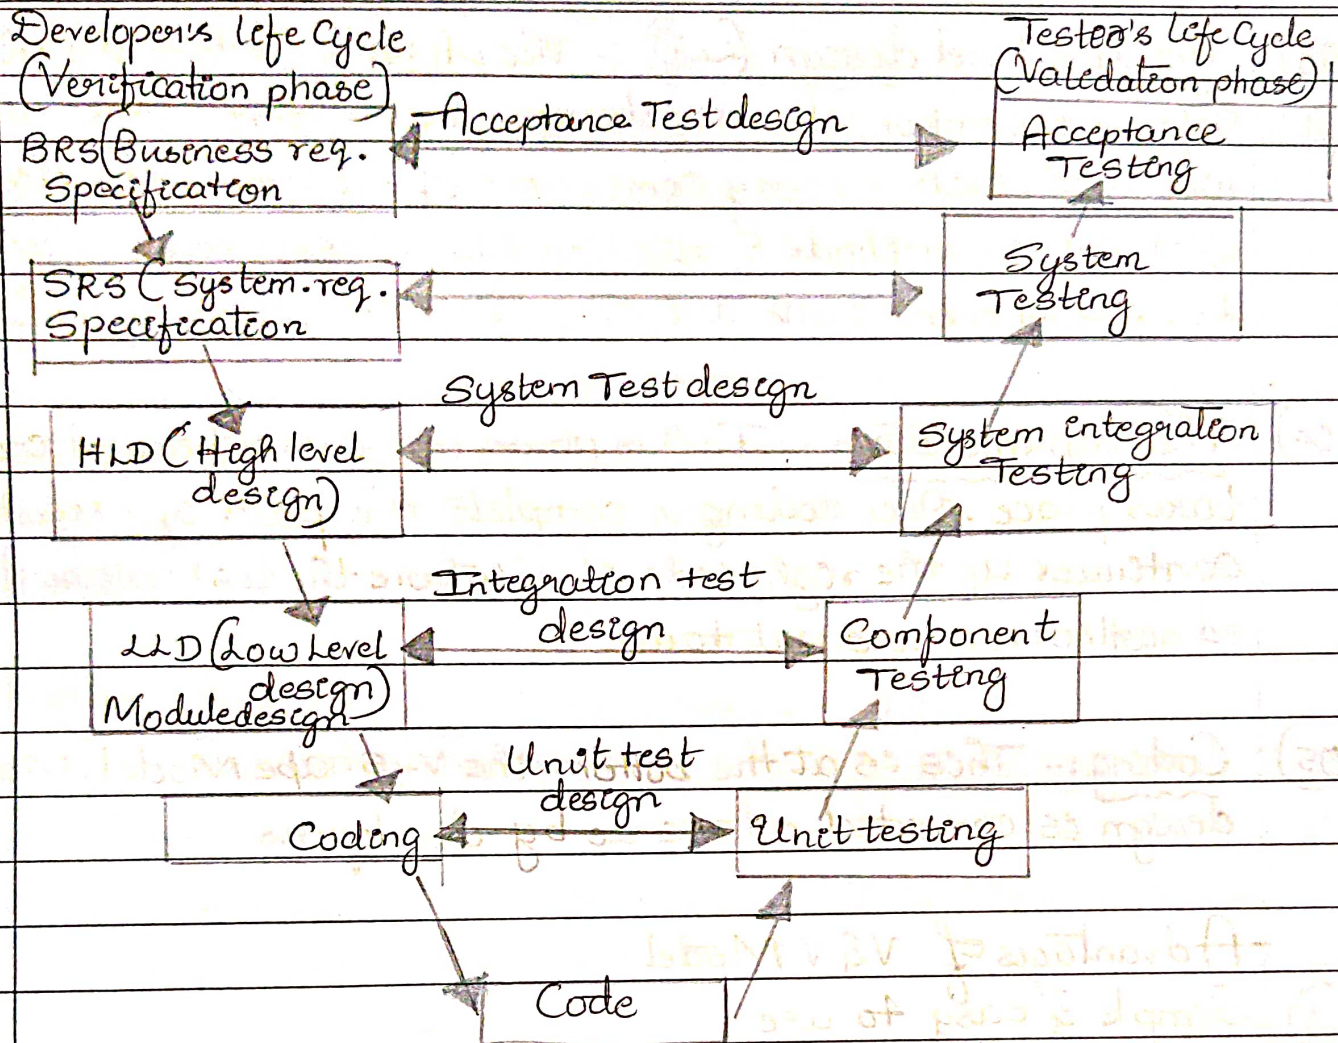 Developer's Life Cycle
(Verification phase)
Tester's Life Cycle
(Validation phase)
BRS (Business req.
Specification
Acceptance Test design
Acceptance
Testing
SRS ( System.req.
Specification
System
Testing
System Test design
HLD ( High level
design)
System integration
Testing
Integration test
design
LLD (Low Level
design)
Module design
Component
Testing
Unit test
design
Coding
Unit testing
Code